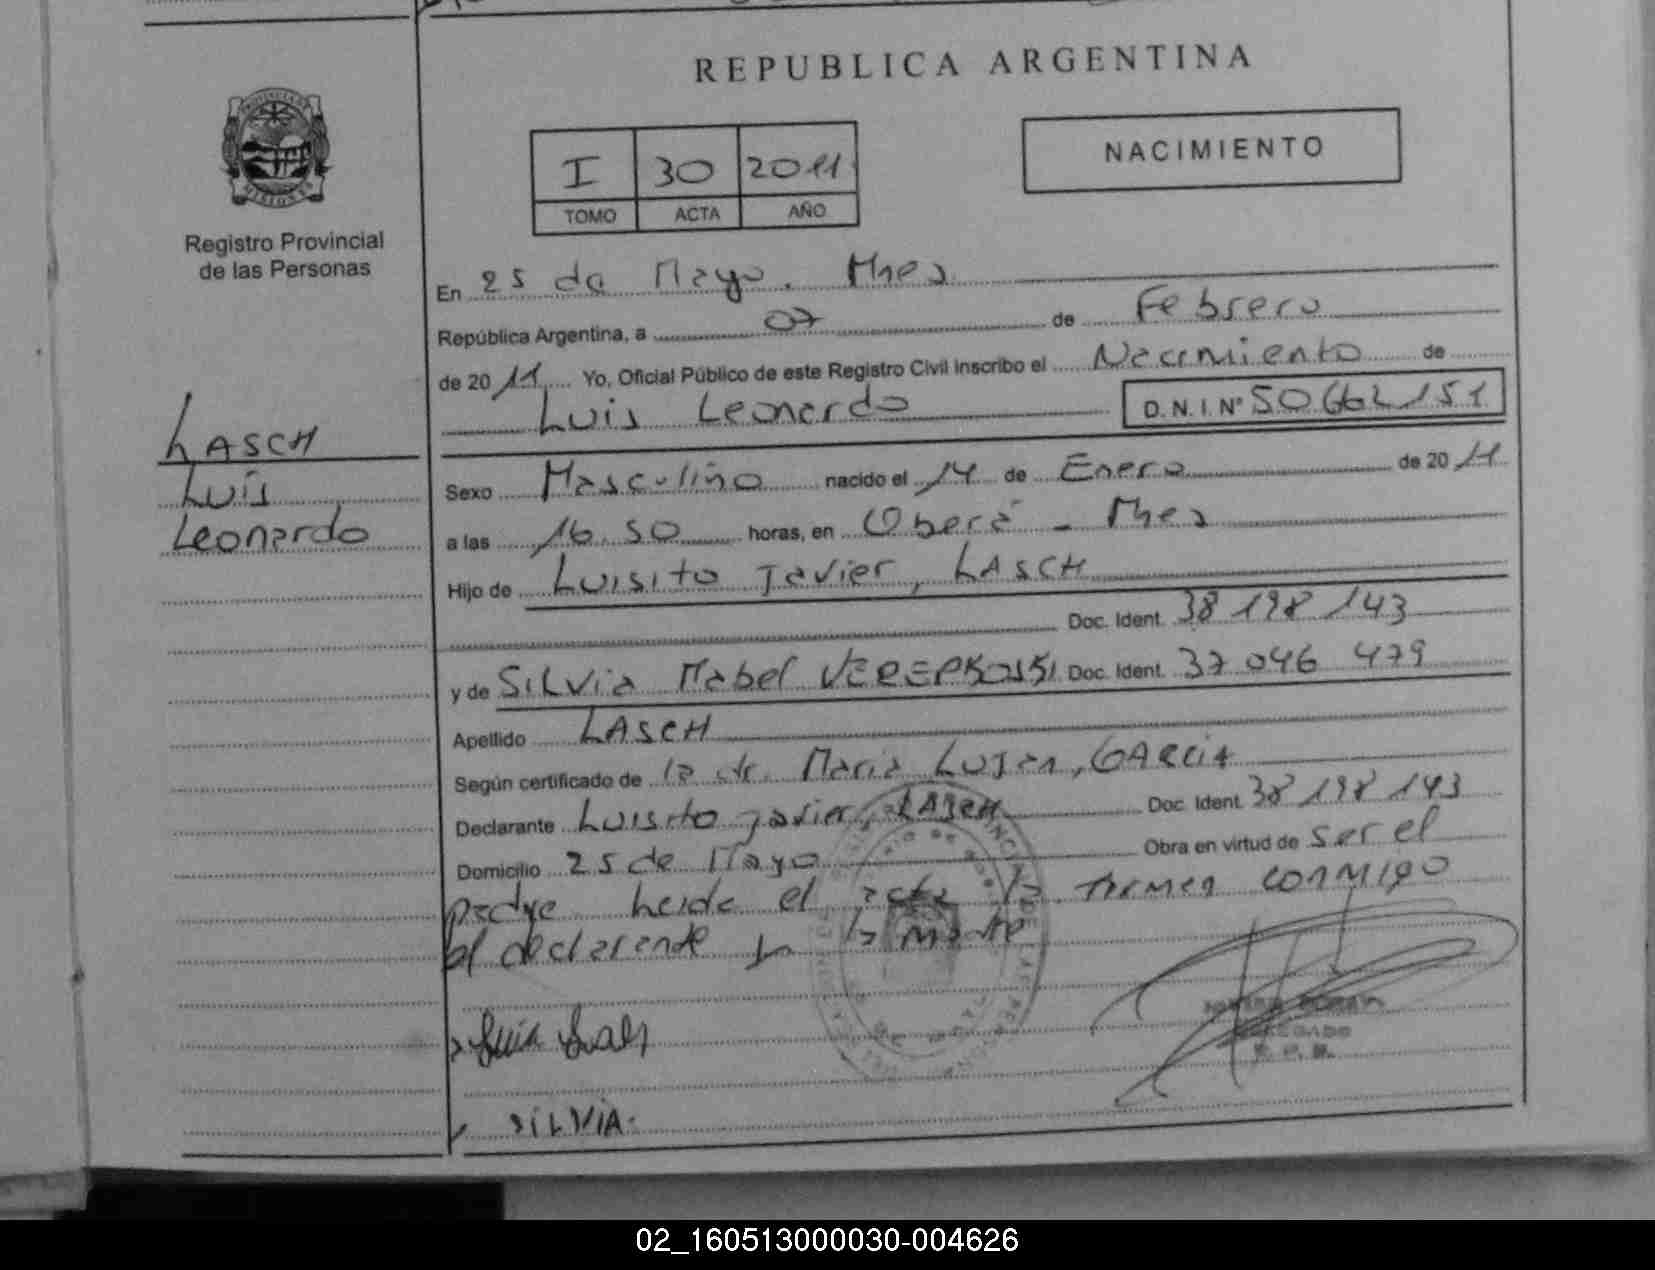 REPUBLICA ARGENTINA
I 30 2011
TOMO ACTA AÑO
NACIMIENTO
Registro Provincial
de las Personas
LASCH
Luis
Leonardo
En 25 de Mayo. Mnes
República Argentina, a 07 de Febrero
de 2011 Yo, Oficial Público de este Registro Civil inscribo el Nacimiento de
Luis Leonardo D.N.I. Nº 50662151
Sexo Masculino nacido el 14 de Enero de 2011
a las 16.50 horas, en Oberá - Mnes
Hijo de Luisito Javier, LASCH
Doc. Ident. 38 198 143
y de Silvia Mabel Doc. Ident. 37 046 479
Apellido LASCH
Según certificado de la dr. Maria Lujan, GARCIA
Declarante Luisito Javier, LASCH Doc. Ident. 38 198 143
Domicilio 25 de Mayo Obra en virtud de ser el
padre leida el acta la firman conmigo
el declarante y la madre
SILVIA.
02_160513000030-004626